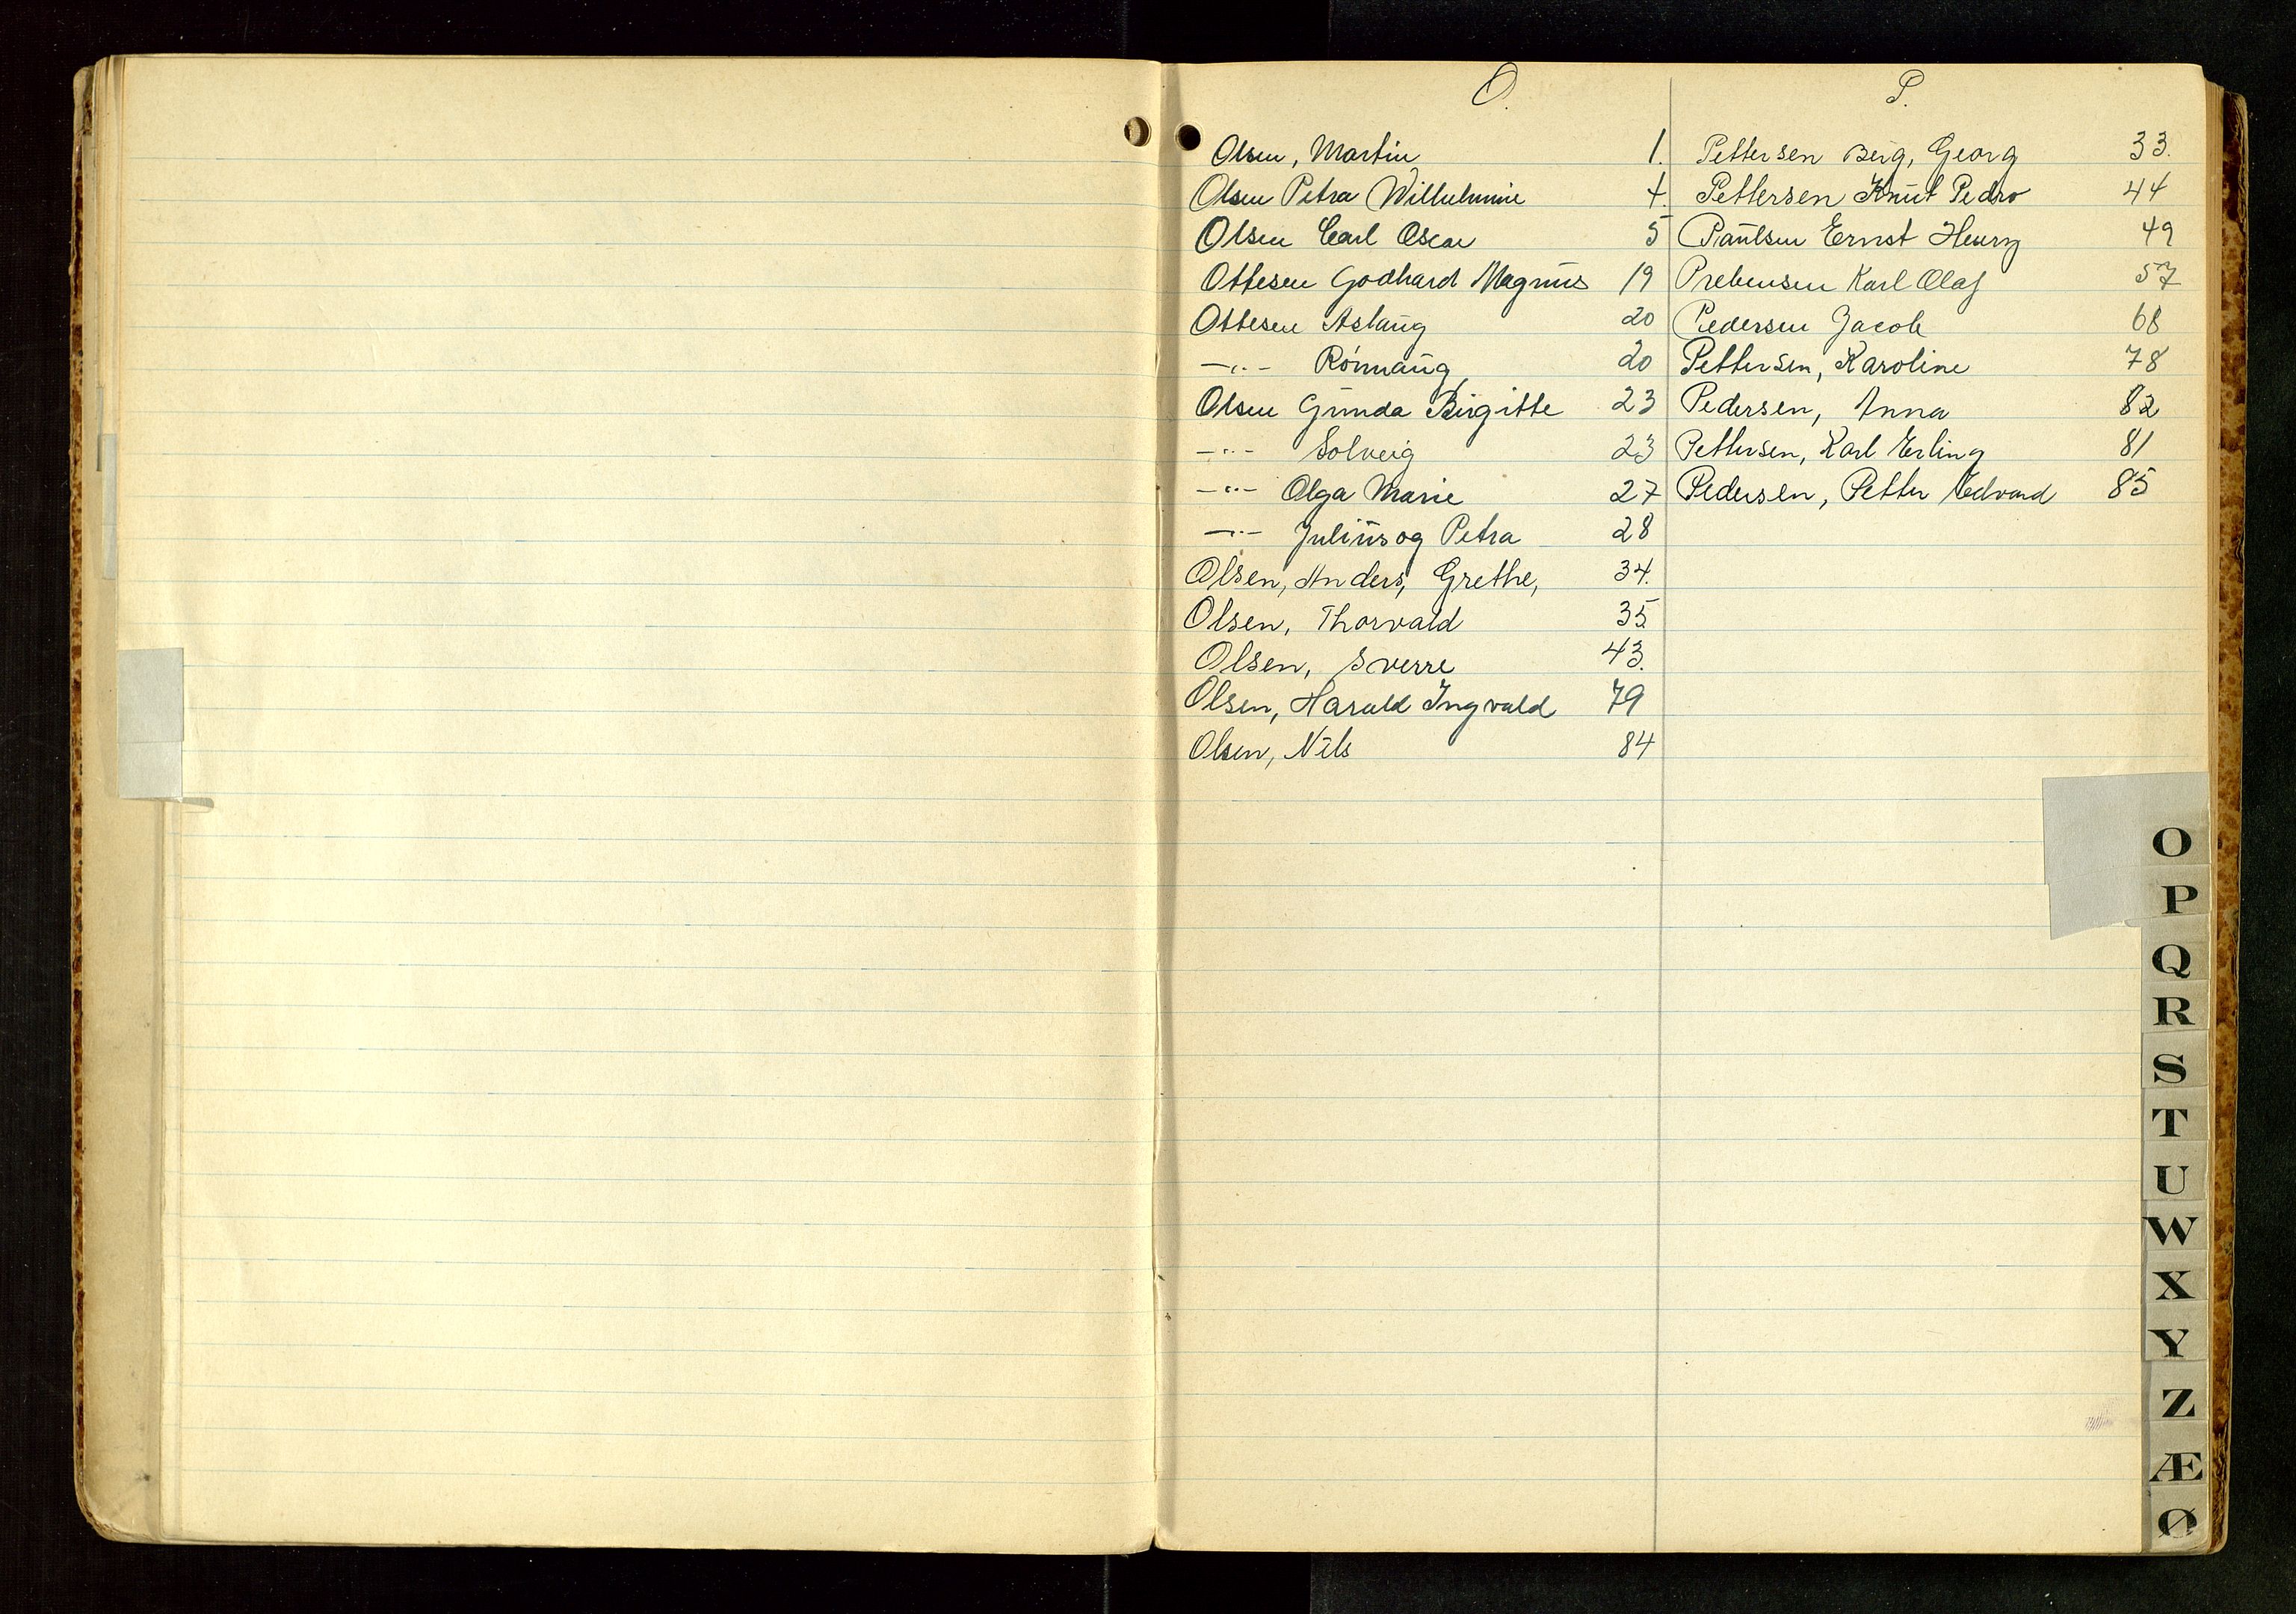 O.
Olsen, Martin 1.
Olsen Petra Wilhelmine 4.
Olsen Carl Oscar 5
Ottesen Godhard Magnus 19
Ottesen Aslaug 20
—"— Rönnaug 20
Olsen Gunda Birgitte 23
—"— Solveig 23
—"— Olga Marie 27
—"— Julius og Petra 28
Olsen, Anders, Grethe, 34.
Olsen, Thorvald 35
Olsen, Sverre 43.
Olsen, Harald Ingvald 79
Olsen, Nils 84
P.
Pettersen Berg, Georg 33.
Pettersen Knut Pedro 44
Paulsen Ernst Henry 49
Prebensen Karl Olaf 57
Pedersen Jacob 68
Pettersen, Karoline 78
Pedersen, Anna 82
Pettersen, Karl Erling 81
Pedersen, Petter Edvard 85
O
P
Q
R
S
T
U
W
X
Y
Z
Æ
Ø